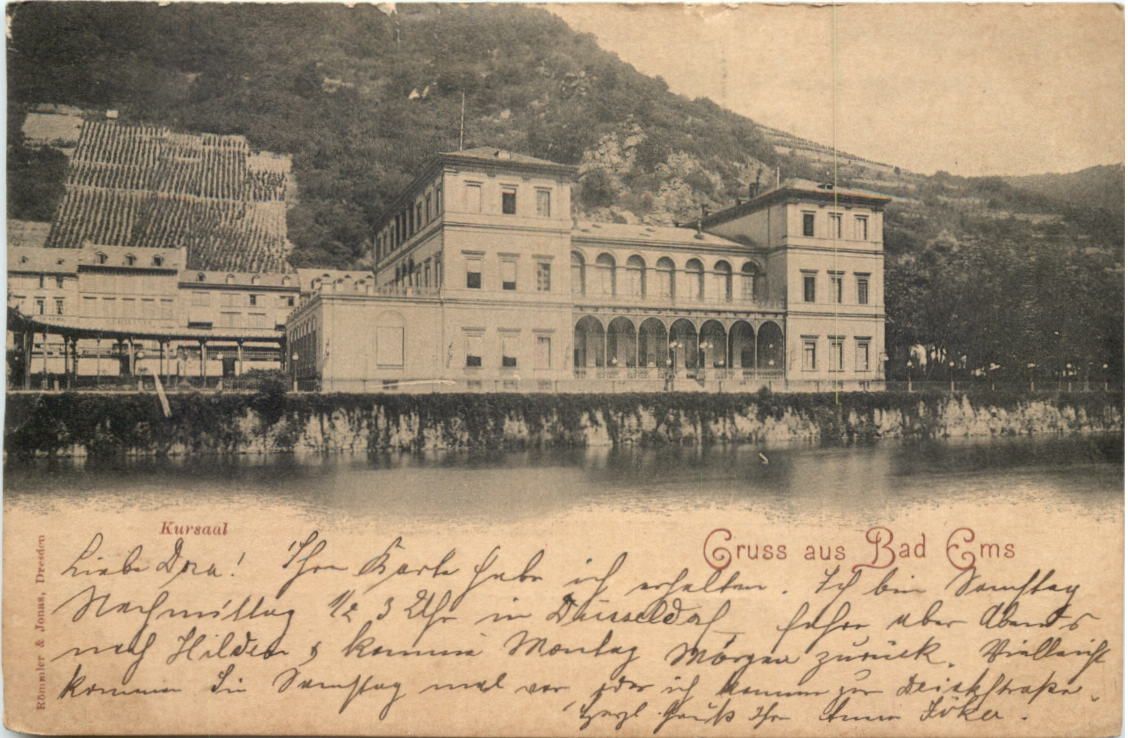 Kursaal
Gruss aus Bad Ems
Römmler & Jonas, Dresden
Liebe Dora! Ihre Karte habe ich erhalten. Ich bin Samstag
Nachmittag 1/2 3 Uhr in Düsseldorf, fahre aber Abends
nach Hilden & komme Montag Morgen zurück. Vielleicht
kommen Sie Samstag mal vor oder ich komme zur
Herzl. Gruß Ihr Anna